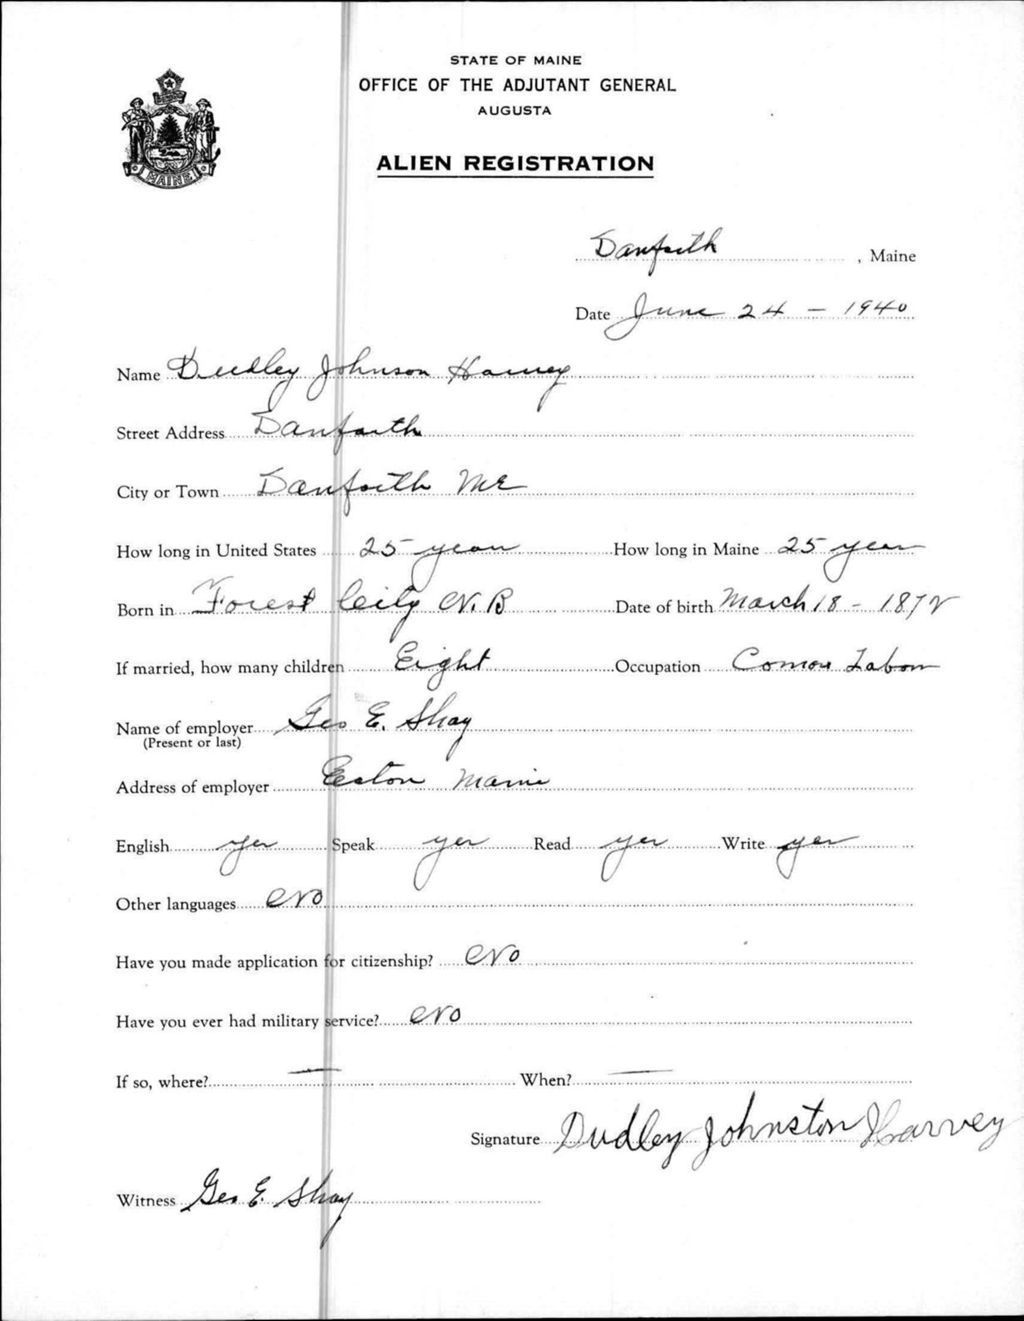 STATE OF MAINE
OFFICE OF THE ADJUTANT GENERAL
AUGUSTA
ALIEN REGISTRATION
MAINE
Danforth, Maine
Date June 24 - 1940
Name Dudley Johnson Harvey
Street Address Danforth
City or Town Danforth Me
How long in United States 25 years How long in Maine 25 years
Born in Forest City N.B Date of birth March 18 - 1872
If married, how many children Eight Occupation Comon Labor
Name of employer Geo E. Shay
(Present or last)
Address of employer Easton Maine
English yes Speak yes Read yes Write yes
Other languages No
Have you made application for citizenship? No
Have you ever had military service? No
If so, where? — When? —
Signature Dudley Johnston Harvey
Witness Geo E. Shay